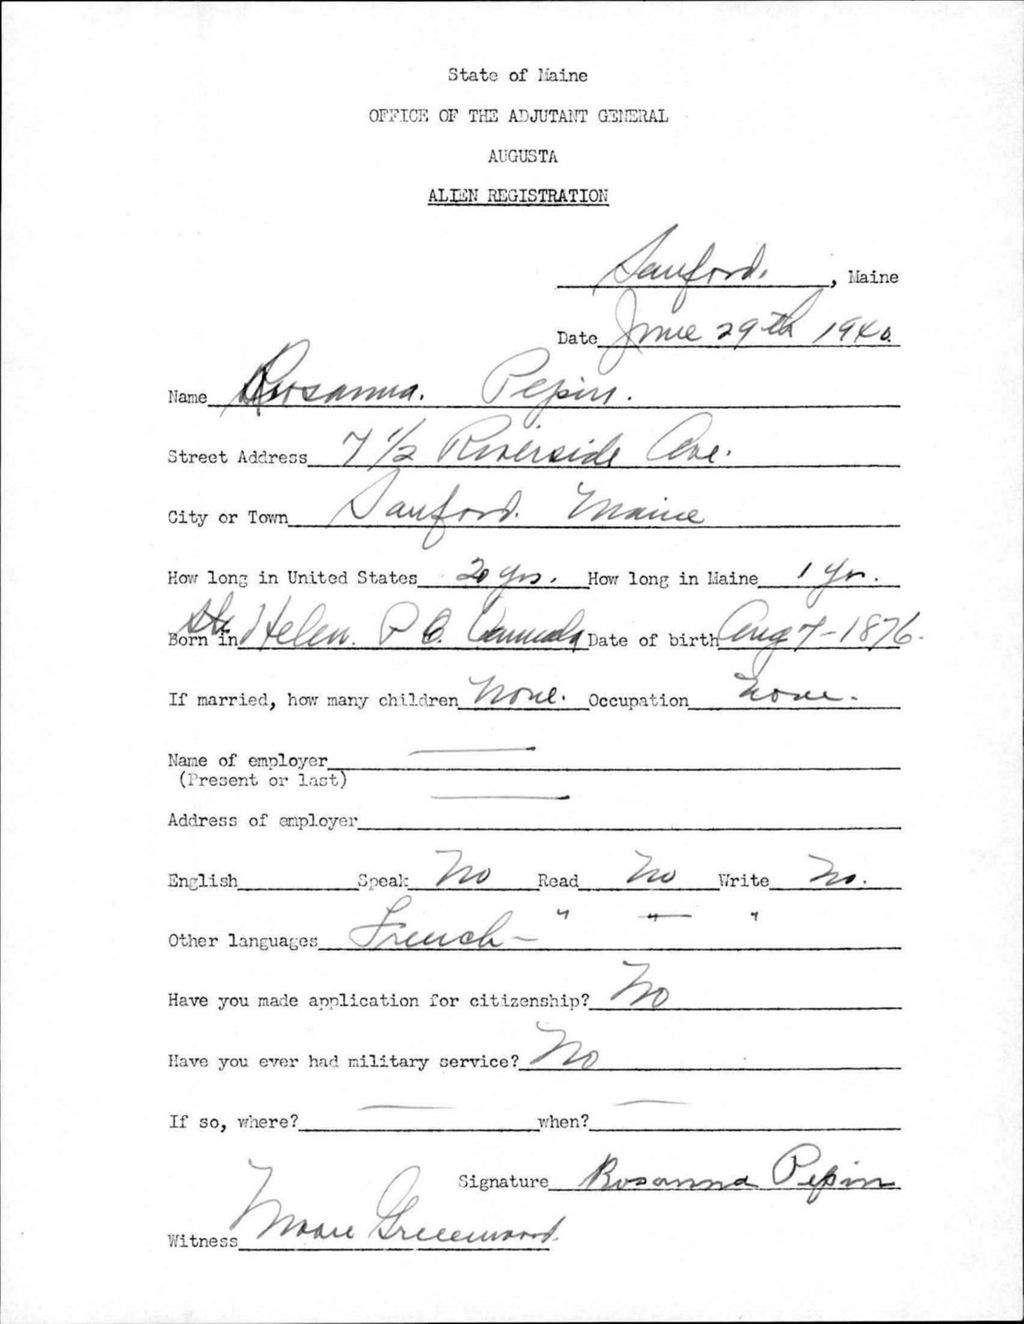 State of Maine
OFFICE OF THE ADJUTANT GENERAL
AUGUSTA
ALIEN REGISTRATION
Sanford. , Maine
Date June 29th 1940.
Name Rosanna. Pepin.
Street Address 7 1/2 Riverside Ave.
City or Town Sanford. Maine
How long in United States 20 yrs. How long in Maine 1 Yr.
Born in Ste Helen. P Q. Canada Date of birth Aug 7-1876.
If married, how many children None. Occupation None.
Name of employer
(Present or last)
Address of employer
English Speak No Read No Write No.
Other languages French - " " "
Have you made application for citizenship? No
Have you ever had military service? No
If so, where? when?
Signature Rosanna Pepin
Witness Greenwood.